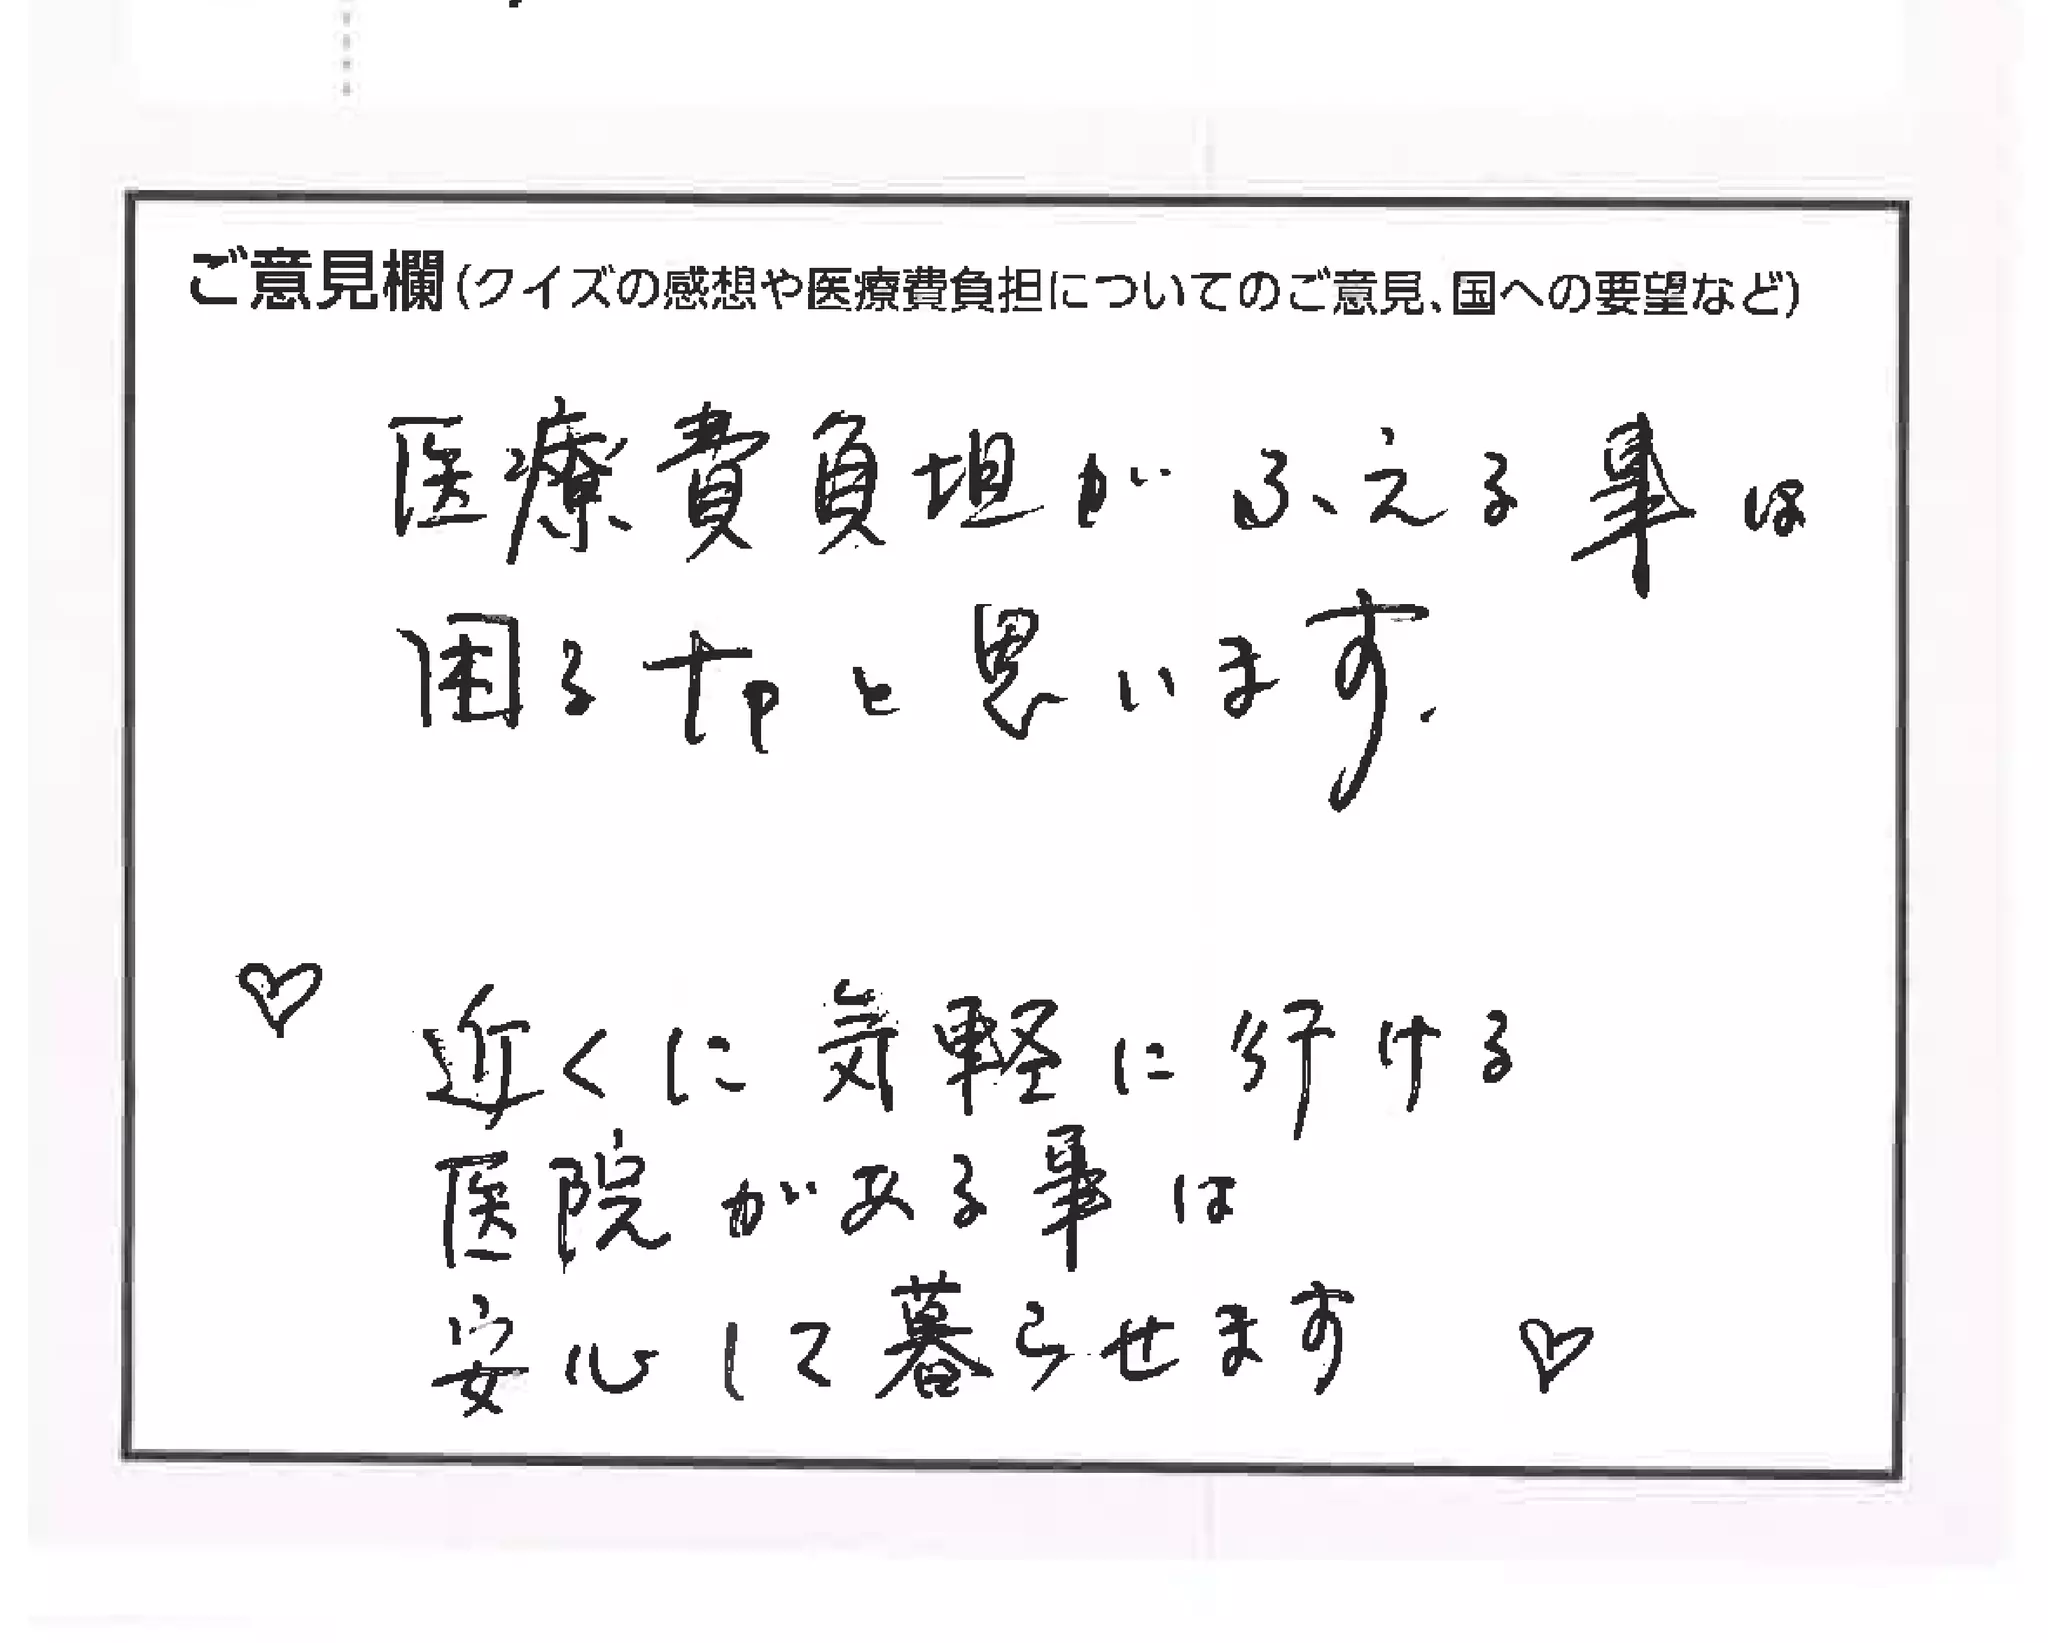 ご意見欄(クイズの感想や医療費負担についてのご意見、国への要望など)
医療費負担がふえる事は
困るなと思います.
♡
近くに気軽に行ける
医院がある事は
安心して暮らせます ♡